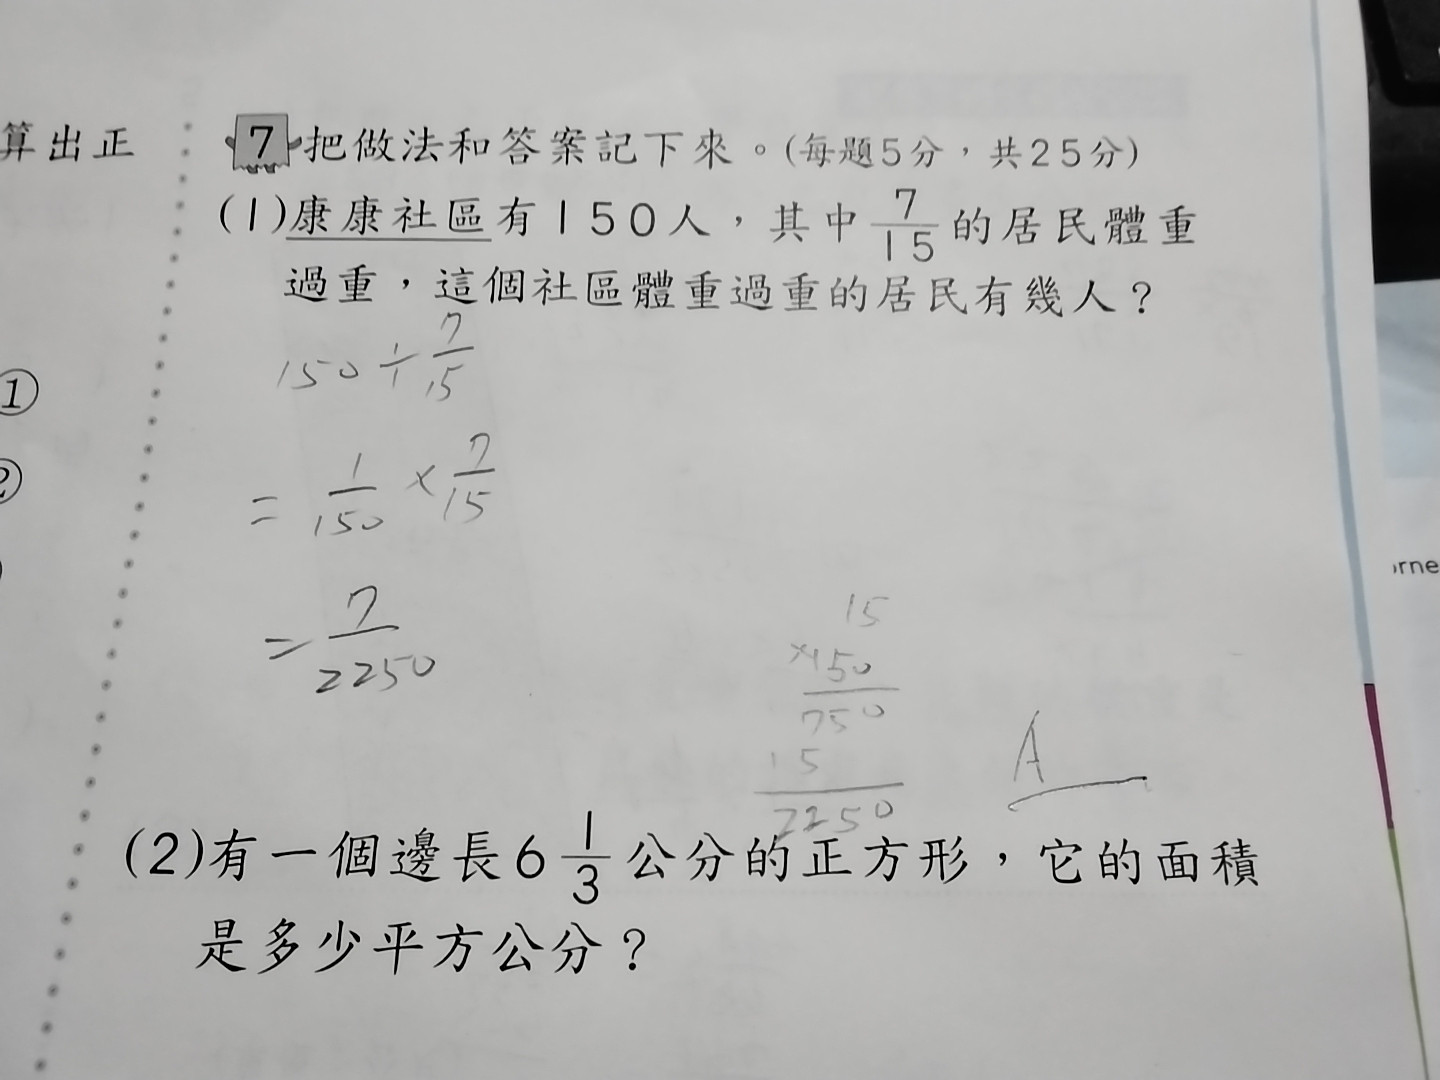 算出正
①
②
7 把做法和答案記下來。(每題5分，共25分)
(1)康康社區有150人，其中7/15的居民體重
過重，這個社區體重過重的居民有幾人？
150÷7/15
=1/150×7/15
=7/2250
15
×150
750
15
2250
A
(2)有一個邊長6 1/3公分的正方形，它的面積
是多少平方公分？
rne